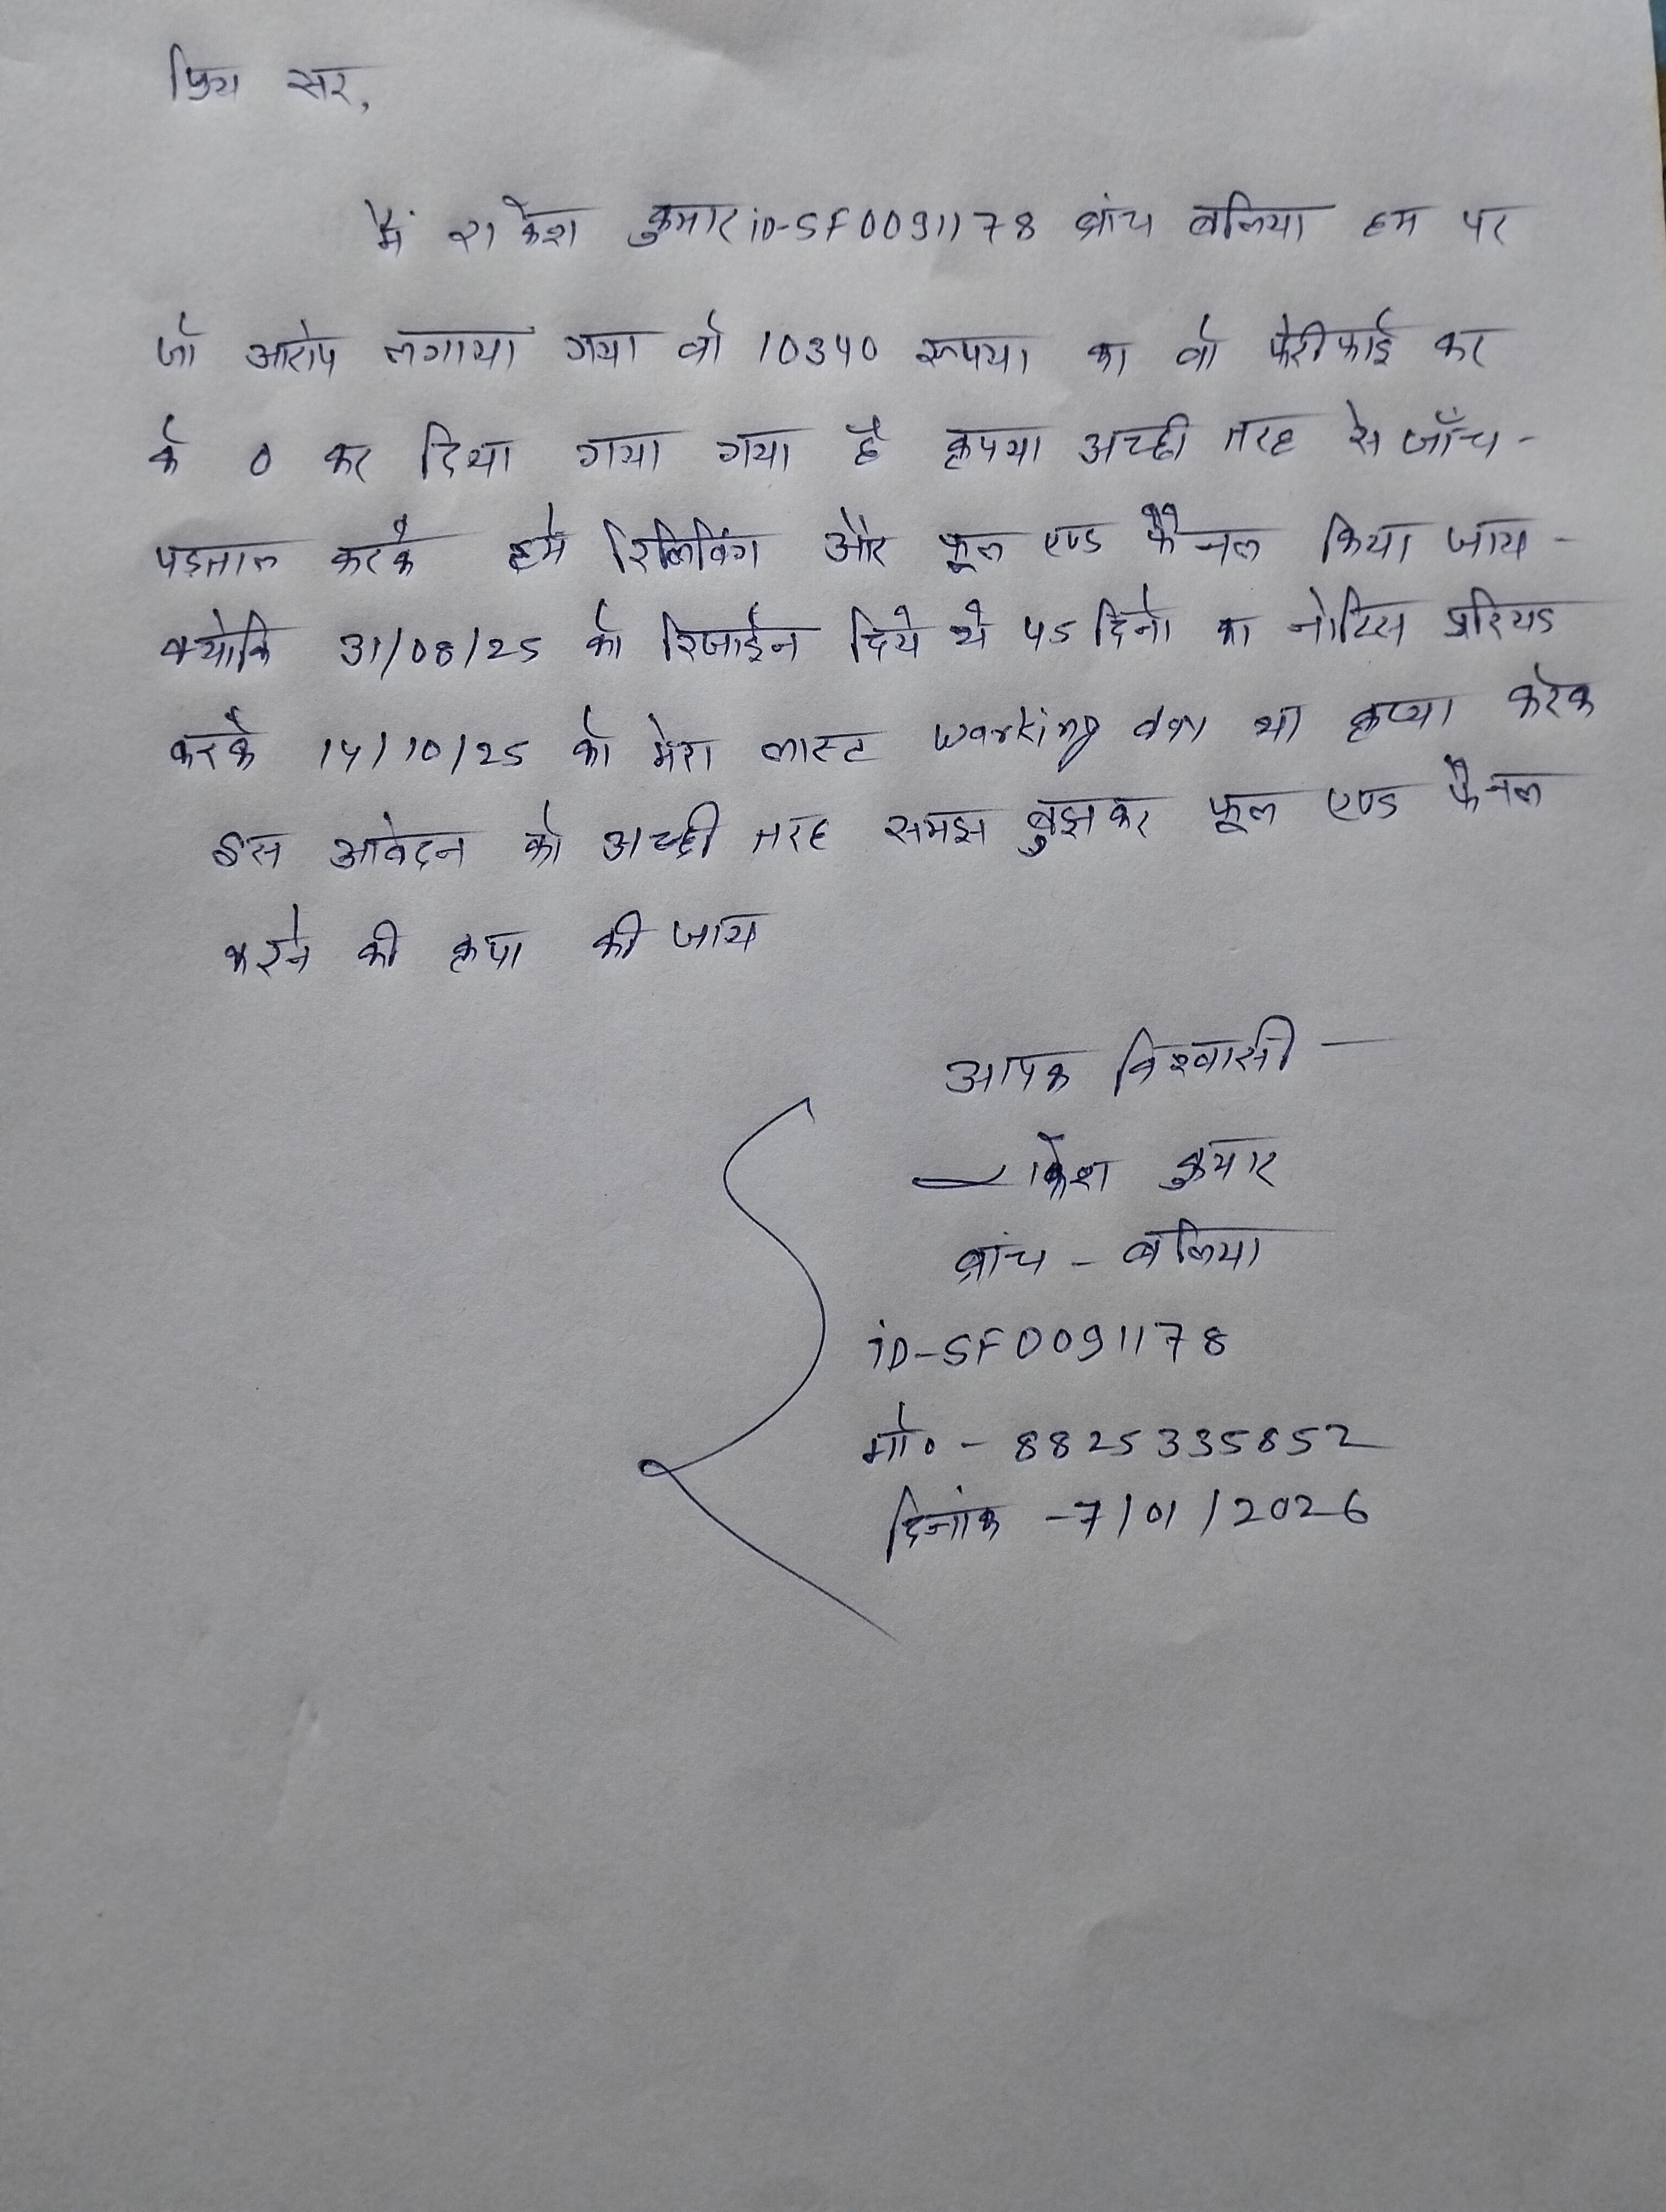 प्रिय सर,
मैं राकेश कुमार iD-SF0091178 ब्रांच बलिया हम पर
जो आरोप लगाया गया वो 10340 रूपया का वो फेरीफाई कर
के 0 कर दिया गया गया है कृपया अच्छी तरह से जाँच-
पड़ताल करके हमे रिलिविंग और फूल एण्ड फैनल किया जाय-
क्योकि 31/08/25 को रिजाईन दिये थे 45 दिनो का नोटिस प्ररियड
करके 14/10/25 को मेरा लास्ट working day था कृप्या करके
इस आवेदन को अच्छी तरह समझ बुझकर फूल एण्ड फैनल
करने की कृपा की जाय
आपक विश्वासी —
राकेश कुमार
ब्रांच - बलिया
iD-SF0091178
मो० - 8825335852
दिनांक -7/01/2026